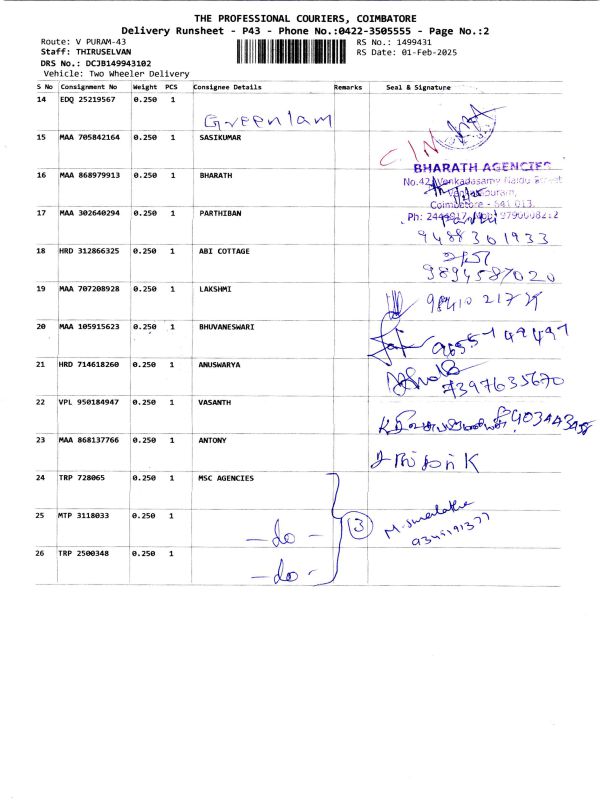 THE PROFESSIONAL COURIERS, COIMBATORE
Delivery Runsheet - P43 - Phone No.:0422-3505555 - Page No.:2
Route: V PURAM-43 RS No.: 1499431
Staff: THIRUSELVAN RS Date: 01-Feb-2025
DRS No.: DCJB149943102
Vehicle: Two Wheeler Delivery
S No Consignment No Weight PCS Consignee Details Remarks Seal & Signature
14 EDQ 25219567 0.250 1
Greenlam
15 MAA 705842164 0.250 1 SASIKUMAR
16 MAA 868979913 0.250 1 BHARATH
BHARATH AGENCIES
Coimbatore - 641 013.
17 MAA 302640294 0.250 1 PARTHIBAN
9488361933
18 HRD 312866325 0.250 1 ABI COTTAGE
9894587020
19 MAA 707208928 0.250 1 LAKSHMI
20 MAA 105915623 0.250 1 BHUVANESWARI
21 HRD 714618260 0.250 1 ANUSWARYA
7397635670
22 VPL 950184947 0.250 1 VASANTH
23 MAA 868137766 0.250 1 ANTONY
24 TRP 728065 0.250 1 MSC AGENCIES
25 MTP 3118033 0.250 1
- do - 3
26 TRP 2500348 0.250 1
- do -